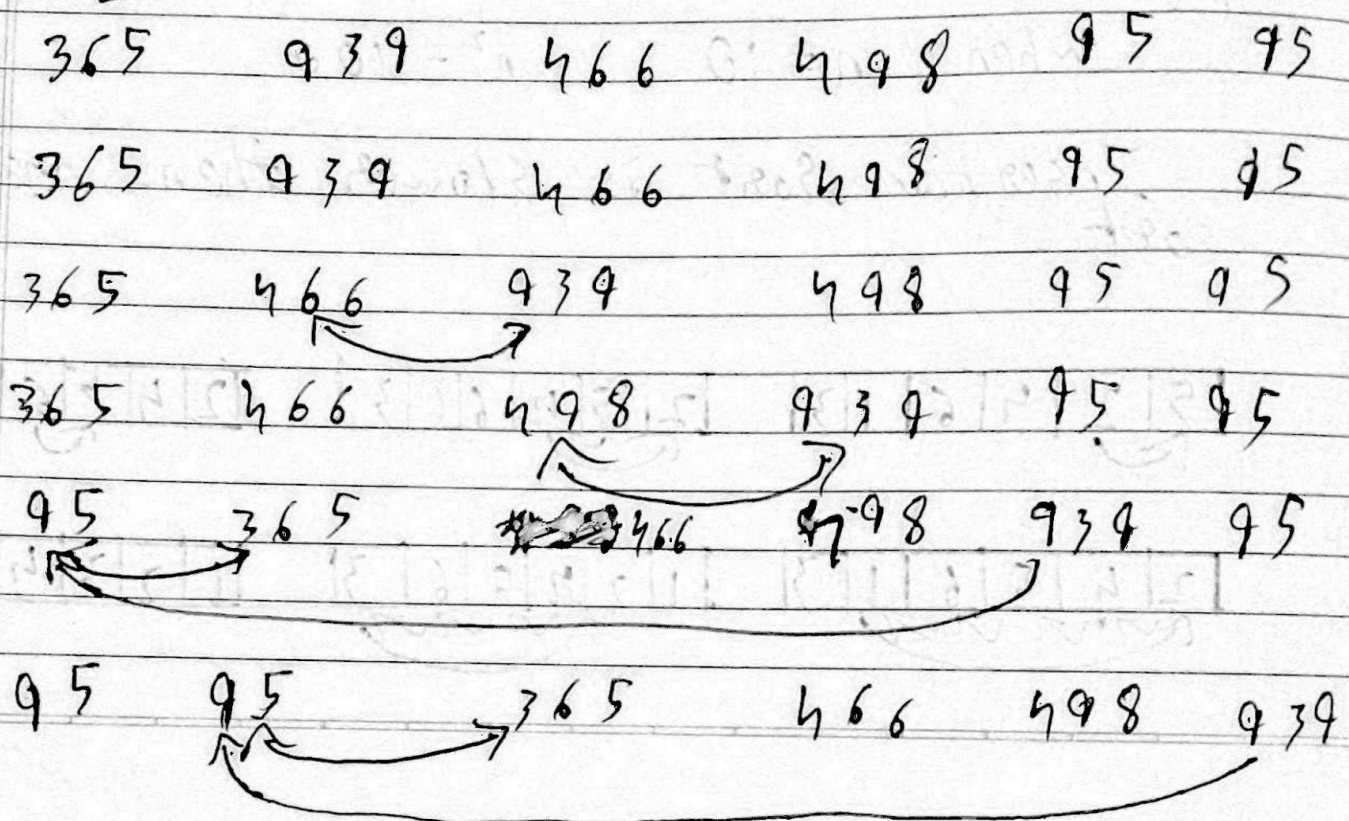 365 939 466 498 95 95
365 939 466 498 95 95
365 466 939 498 95 95
365 466 498 939 95 95
95 365 466 498 939 95
95 95 365 466 498 939